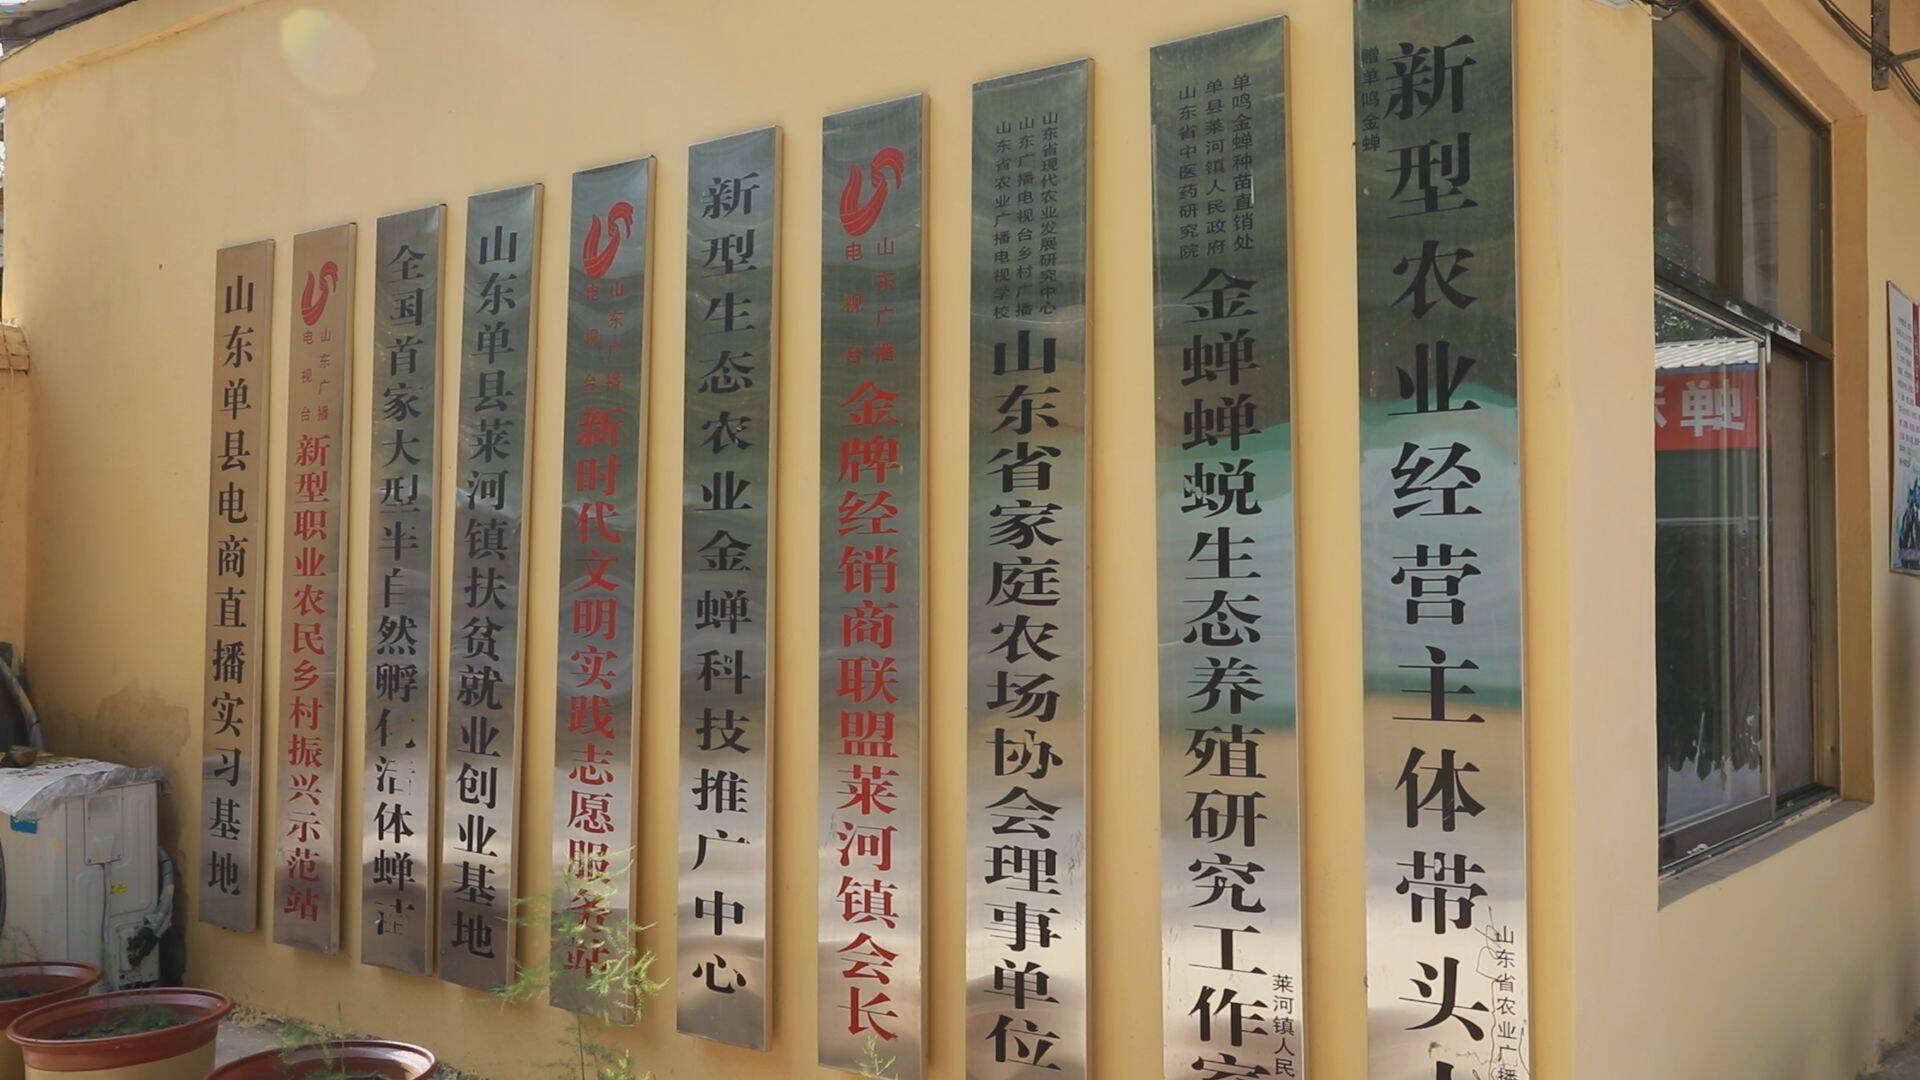 山东单县电商直播实习基地
山东广播
电视台
新型职业农民乡村振兴示范站
全国首家大型半自然孵化活体蝉
山东单县莱河镇扶贫就业创业基地
山东广播
电视台
新时代文明实践志愿服务站
新型生态农业金蝉科技推广中心
山东广播
电视台
金牌经销商联盟莱河镇会长
山东省现代农业发展研究中心
山东广播电视台乡村广播
山东省农业广播电视学校
山东省家庭农场协会理事单位
单鸣金蝉种苗直销处
单县莱河镇人民政府
山东省中医药研究院
金蝉蝉蜕生态养殖研究工作室
莱河镇人民
赠单鸣金蝉
新型农业经营主体带头
山东省农业广播
单